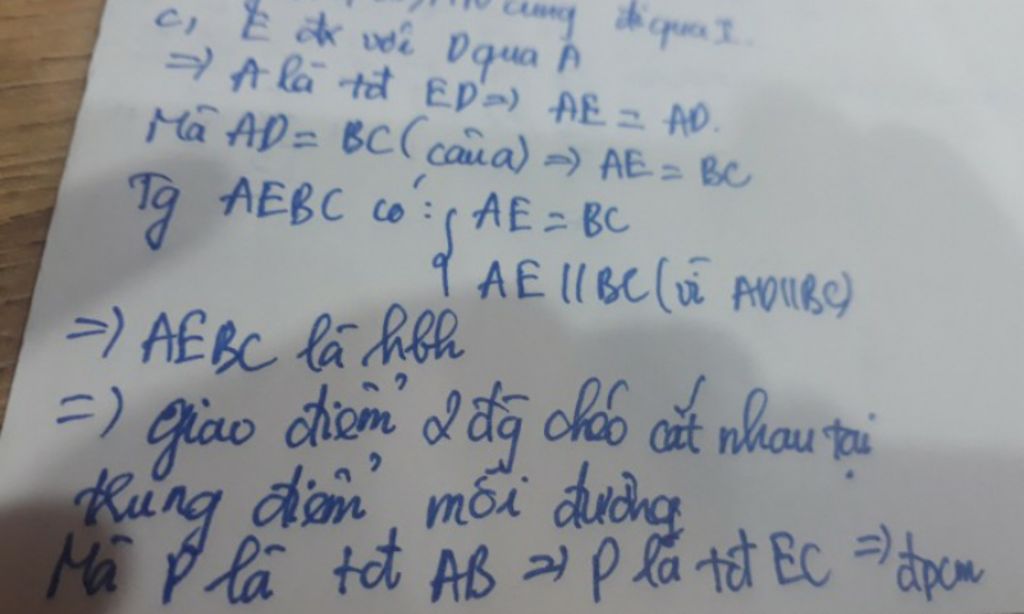 cùng đi qua I.
c, E đx với D qua A
=> A là tđ ED => AE = AD.
Mà AD = BC (câu a) => AE = BC
Tg AEBC có: { AE = BC
AE // BC (vì AD // BC)
=> AEBC là hbh
=> giao điểm 2 đg chéo cắt nhau tại
trung điểm mỗi đường
Mà P là tđ AB => P là tđ EC => đpcm